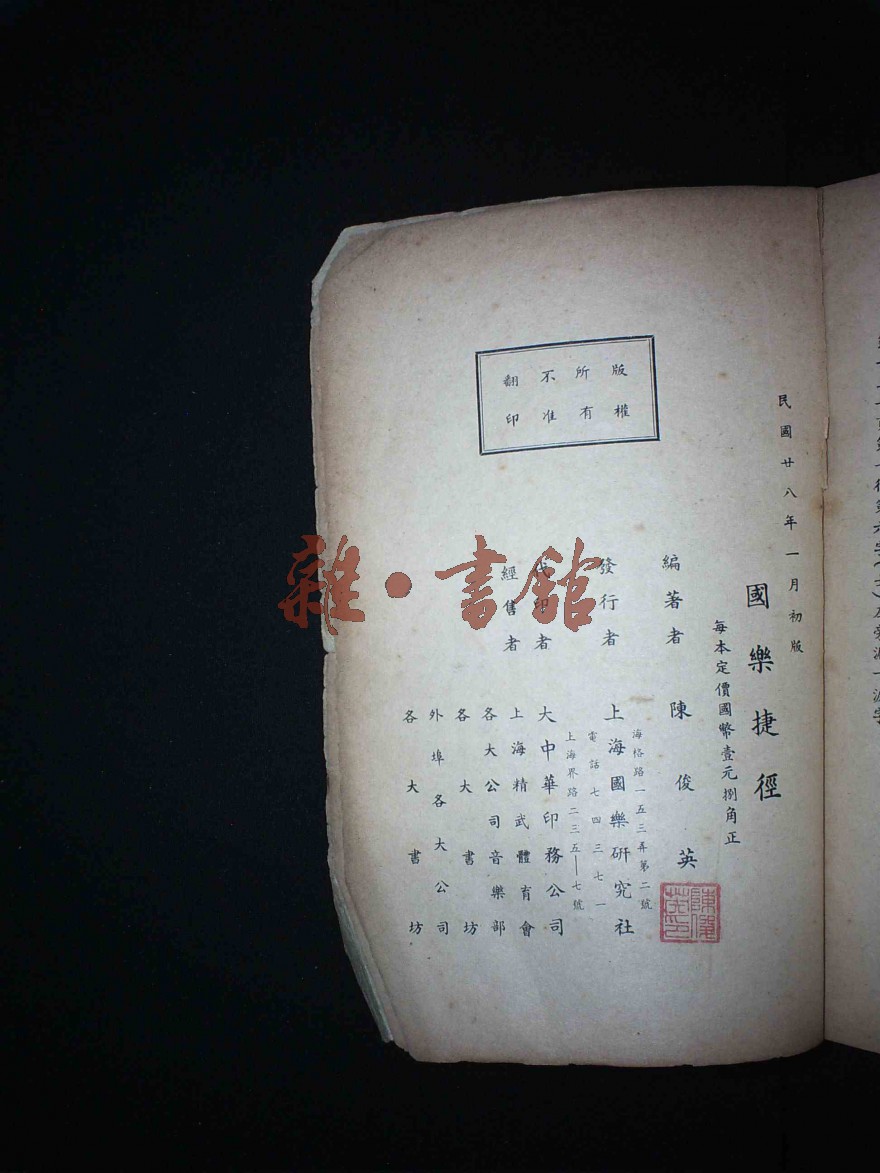 民國廿八年一月初版
國樂捷徑
每本定價國幣壹元捌角正
編著者 陳俊英
陳俊英印
發行者 上海國樂研究社
海格路一五三弄第二號
電話七四三七一
代印者 大中華印務公司
上海界路二三五—七號
經售者 上海精武體育會
各大公司音樂部
各大書坊
外埠各大公司
各大書坊
版權
所有
不准
翻印
雜·書館